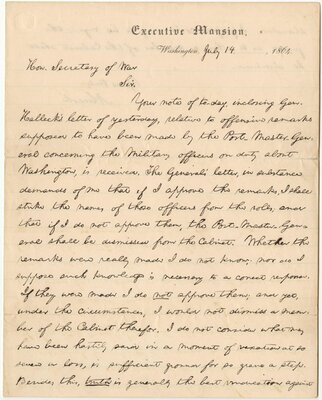 Executive Mansion,
Washington, July 14, 1864.
Hon. Secretary of War
Sir.
Your note of to-day, inclosing Gen.
Halleck's letter of yesterday, relative to offensive remarks
supposed to have been made by the Post-Master-Gen-
eral concerning the Military officers on duty about
Washington, is received. The General's letter, in substance
demands of me that if I approve the remarks, I shall
strike the names of those officers from the rolls; and
that if I do not approve them, the Post-Master-Gen-
eral shall be dismissed from the Cabinet. Whether the
remarks were really made I do not know; nor do I
suppose such knowledge is necessary to a correct response.
If they were made I do not approve them; and yet,
under the circumstances, I would not dismiss a mem-
ber of the Cabinet therefor. I do not consider what may
have been hastily said in a moment of vexation at so
severe a loss, is sufficient ground for so grave a step.
Besides this, truth is generally the best vindication against